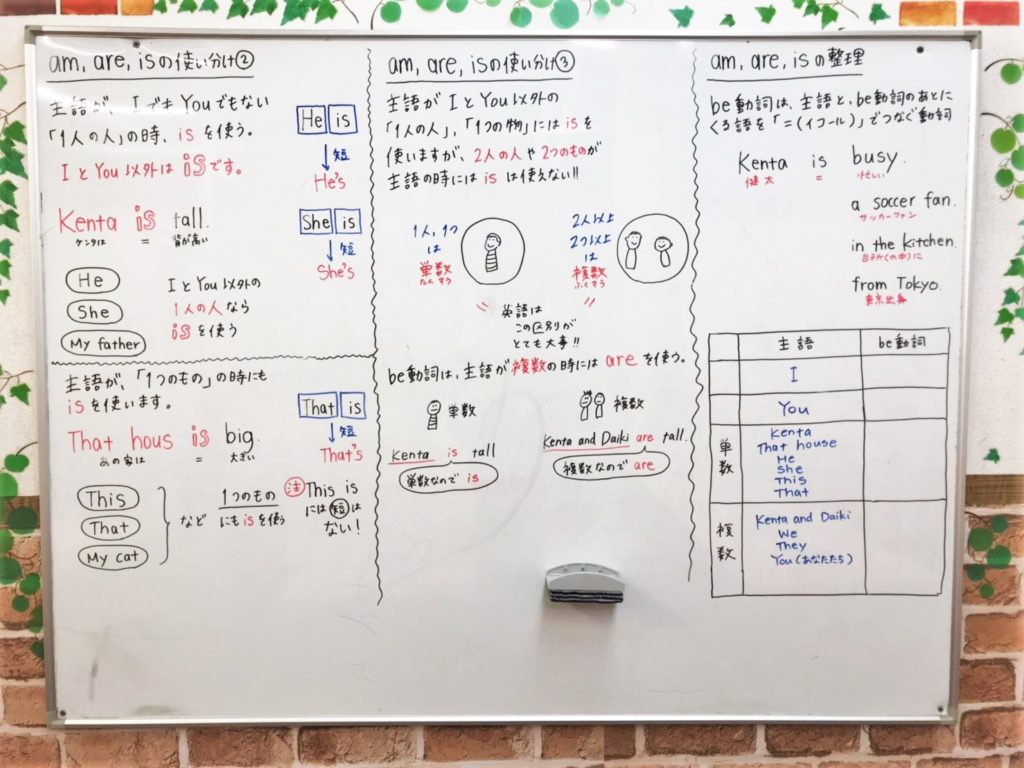 am, are, isの使い分け②
主語が、IでもYouでもない
「1人の人」の時、isを使う。
IとYou以外はisです。
Kenta is tall.
ケンタは = 背が高い
He
She
My father
IとYou以外の
1人の人なら
isを使う
He is
短
He's
She is
短
She's
主語が、「1つのもの」の時にも
isを使います。
That hous is big.
あの家は = 大きい
This
That
My cat
など
1つのもの
にもisを使う
That is
短
That's
注 This is
には短は
ない!
am, are, isの使い分け③
主語がIとYou以外の
「1人の人」,「1つの物」にはisを
使いますが、2人の人や2つのものが
主語の時にはisは使えない!!
1人,1つ
は
単数
たんすう
2人以上
2つ以上
は
複数
ふくすう
英語は
この区別が
とても大事!!
be動詞は、主語が複数の時にはareを使う。
単数
Kenta is tall
単数なのでis
複数
Kenta and Daiki are tall.
複数なのでare
am, are, isの整理
be動詞は、主語と、be動詞のあとに
くる語を「=(イコール)」でつなぐ動詞
Kenta is busy.
健太 = 忙しい
a soccer fan.
サッカーファン
in the kitchen.
台所(の中)に
from Tokyo.
東京出身
主語 be動詞
I
You
単数
Kenta
That house
He
She
This
That
複数
Kenta and Daiki
We
They
You(あなたたち)